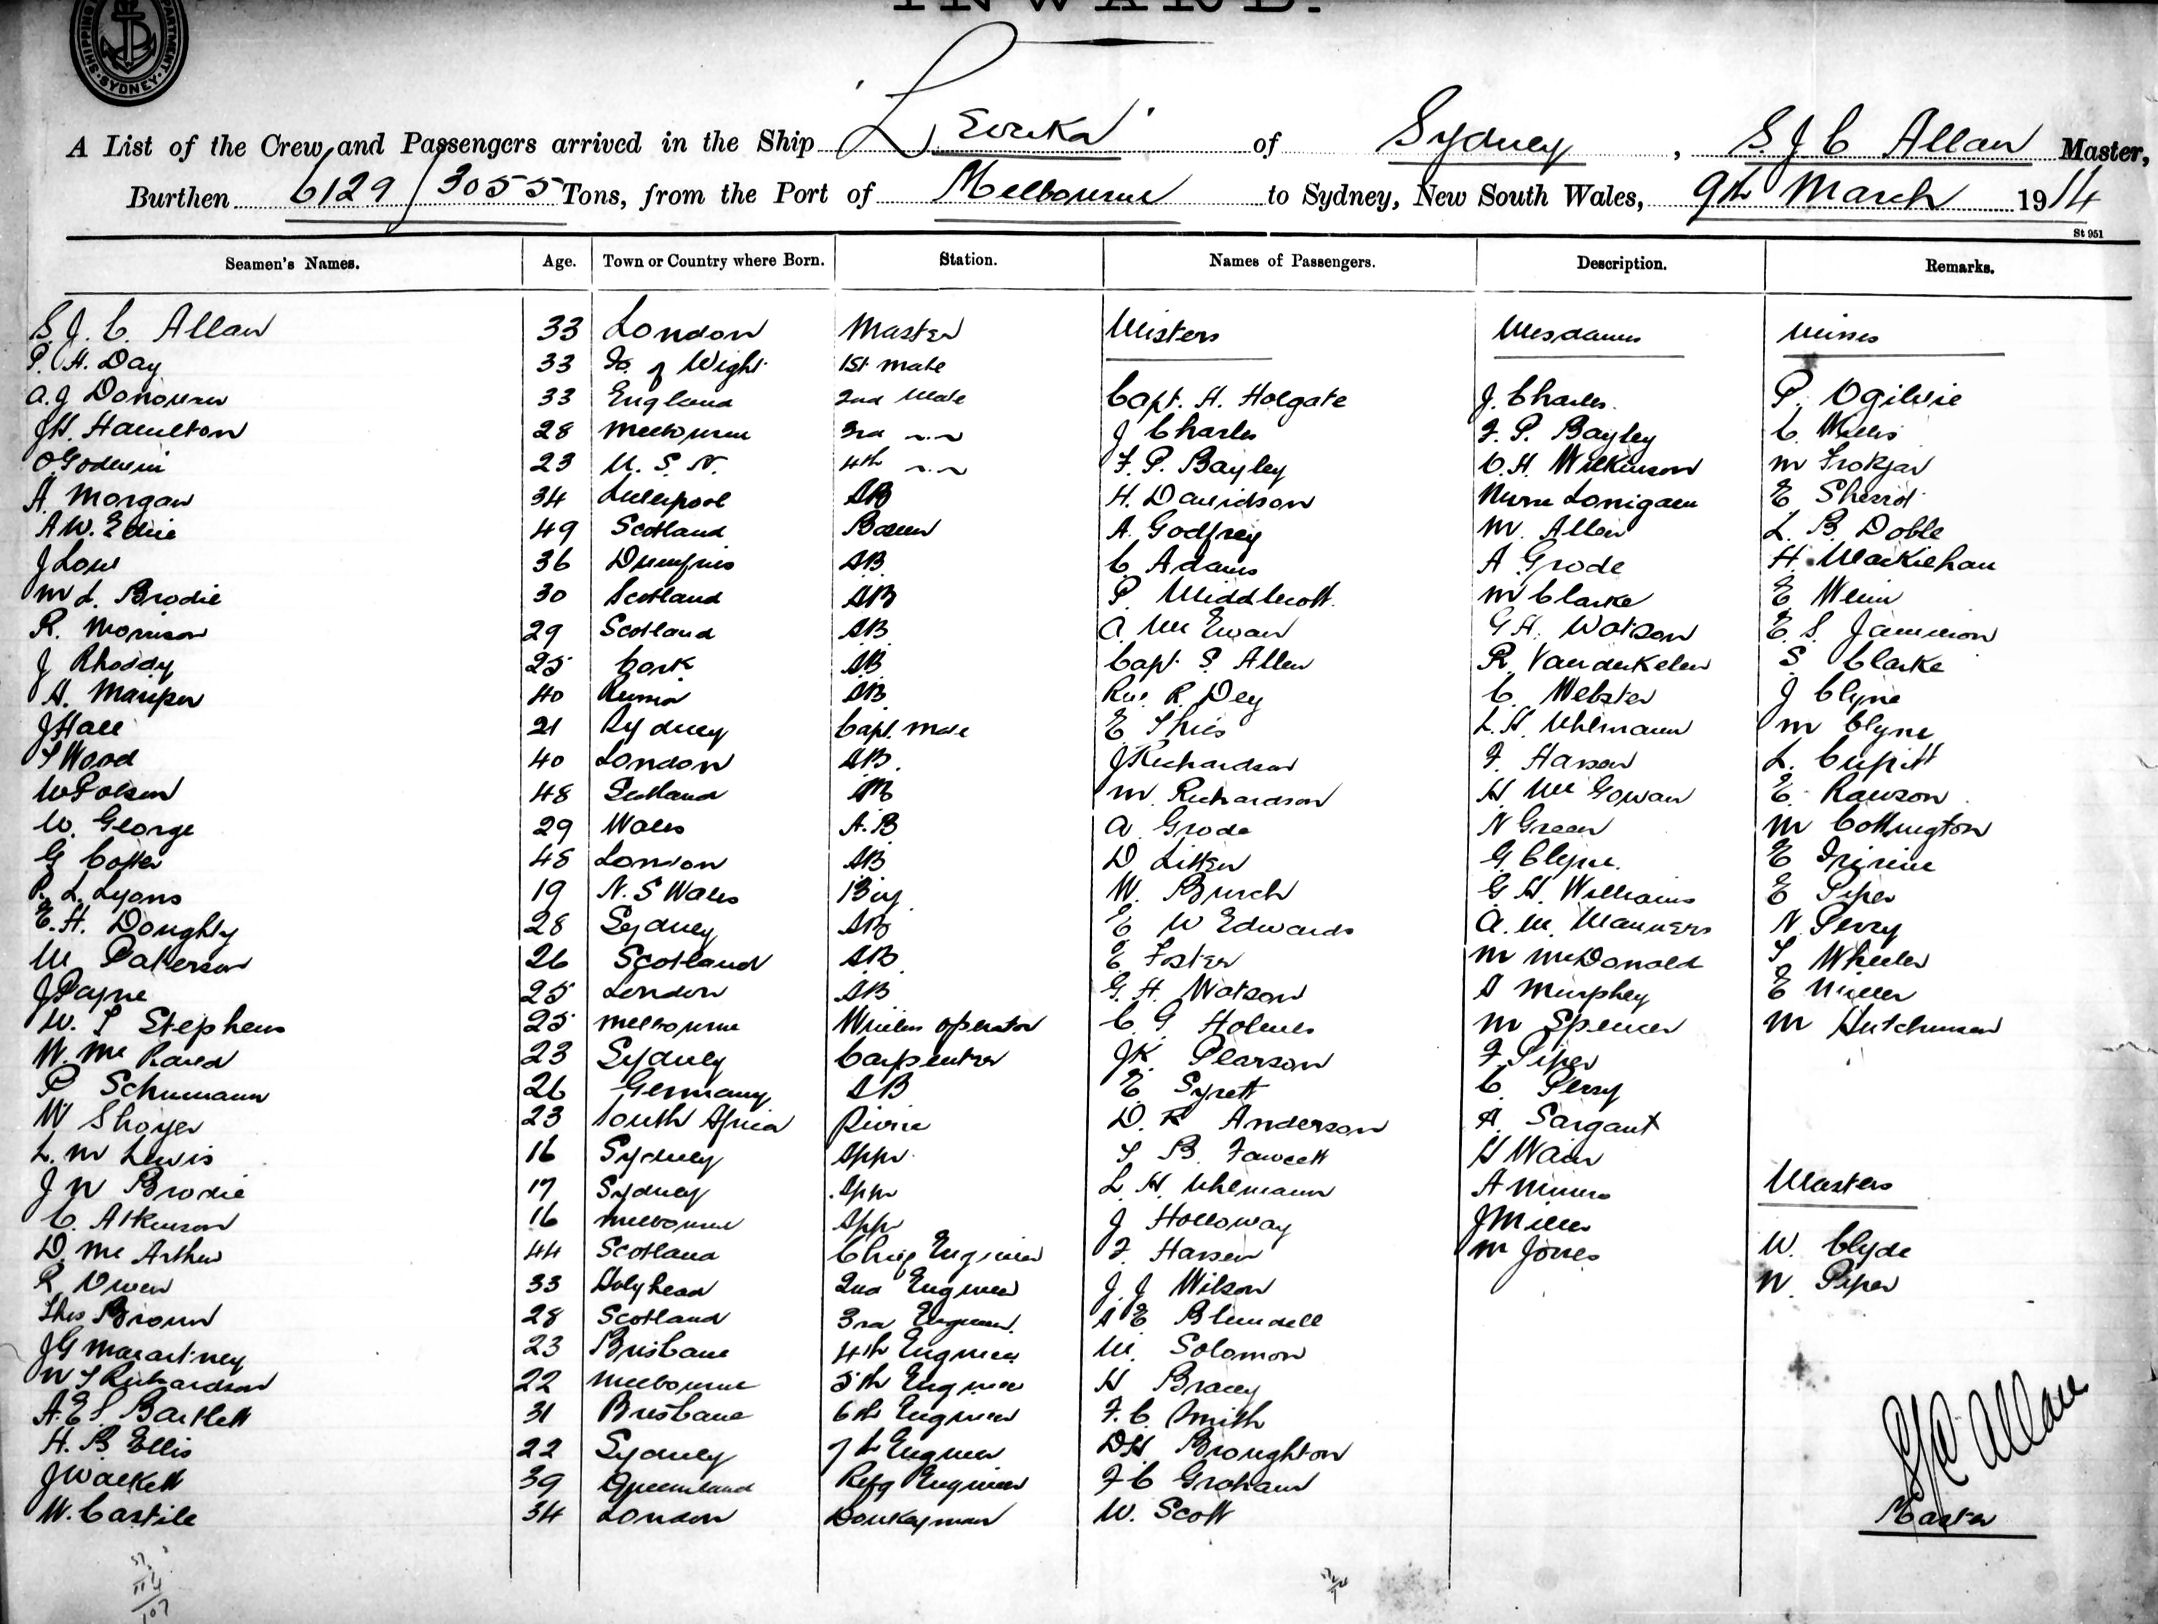 INWARD.
SHIPPING DEPARTMENT SYDNEY
A List of the Crew and Passengers arrived in the Ship "Levuka" of Sydney, S J C Allan Master,
Burthen 6129/3055 Tons, from the Port of Melbourne to Sydney, New South Wales, 9th March 1914
St 951
Seamen's Names. Age. Town or Country where Born. Station. Names of Passengers. Description. Remarks.
S. J. C. Allan 33 London Master Misters Mesdames Misses
P. H. Day 33 Is. of Wight 1st mate
A. J Donovan 33 England 2nd Mate Capt. H. Holgate J. Charles P. Ogilvie
J H. Hamilton 28 Melbourne 3rd " " J Charles F. P. Bayley C. Wills
O Godwin 23 U. S. N. 4th " " F. P. Bayley O. H. Wilkinson M Frokjar
A. Morgan 34 Liverpool AB H. Davidson Nurse Lonigan E Sherrot
A W. Edie 49 Scotland Bosun A. Godfrey M. Allen L. B. Doble
J Low 36 Dumfries AB C Adams A Grode H. MacKiehan
M L. Brodie 30 Scotland AB P. Middlecott M Clarke E Weir
R. Morrison 29 Scotland AB A McEwan G H. Watson E. S. Jamieson
J Rhoddy 25 Cork AB Capt. S. Allen R. Vanderkelen S Clarke
A. 40 Russia AB Rev. R. Dey C. Webster J Clyne
J Hall 21 Sydney Capt. Mate E Thies L. H. Uhlmann M Clyne
T Wood 40 London AB. J Richardson F. Hansen L. Cupitt
W Polson 48 Scotland AB M. Richardson H McGowan E. Rawson
W. George 29 Wales A.B A Grode N Green M Cottington
G Cotter 48 London AB D Litten G. Clyne. E
P. L. Lyons 19 N. S Wales Boy W. Burch G H. Williams E Piper
E. H. Doughty 28 Sydney AB E W Edwards A. M. Manners N Perry
M Paterson 26 Scotland AB E Foster M McDonald T Wheeler
J Payne 25 London AB G. H. Watson A Murphy E Miller
W. T Stephens 25 Melbourne Wireless operator C. G Holmes M Spencer M Hutchinson
W. Mc 23 Sydney Carpenter J K. Pearson F. Piper
P Schumann 26 Germany AB E. Syrett C. Perry
W Shoyer 23 South Africa D. R Anderson A. Sargant
L. M Lewis 16 Sydney Appr. T B. Fawcett H Wain
J N Brodie 17 Sydney Appr L H. Uhlmann A Masters
C. Atkinson 16 Melbourne Appr J Holloway J Miller
D. McArthur 44 Scotland Chief Engineer F. Hansen M Jones W. Clyde
R Owen 33 Holyhead 2nd Engineer J. J Wilson N Piper
Thos Brown 28 Scotland 3rd Engineer. A E Blundell
J G Macartney 23 Brisbane 4th Engineer M. Solomon
N T Richardson 22 Melbourne 5th Engineer H Bracey
A. E S. Bartlett 31 Brisbane 6th Engineer F. C. Smith
H. B Ellis 22 Sydney 7th Engineer D H. Broughton
J Wackett 39 Queensland Refg Engineer F C Graham
W. Castile 34 London Donkeyman W. Scott
S J C Allan
Master